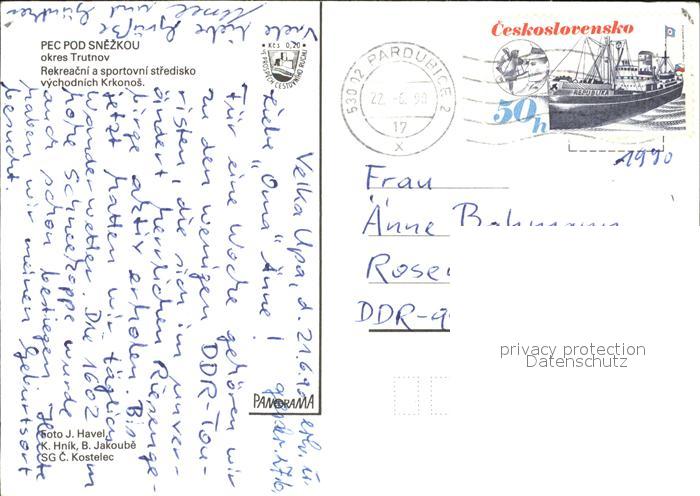 PEC POD SNĚŽKOU
okres Trutnov
Rekreační a sportovní středisko
východních Krkonoš.
Kčs 0,20
Foto J. Havel,
K. Hník, B. Jakoubě
SG Č. Kostelec
PANORAMA
Velka Upa, d. 21.6.90
Liebe "Oma" Änne!
Für eine Woche gehören wir
zu den wenigen DDR-Tou-
risten, die sich im unver-
ändert herrlichen Riesenge-
birge aktiv erholen. Bis
jetzt hatten wir täglich
Wanderwetter. Die 1602 m
hohe Schneekoppe wurde
auch schon bestiegen. Heute
haben wir meinen Geburtsort
besucht.
Viele liebe Grüße
und
Československo
REPUBLIKA
50h
530 12 PARDUBICE 2
22.-6.90
17
x
1990
Frau
Änne
Rose
DDR-9
privacy protection
Datenschutz